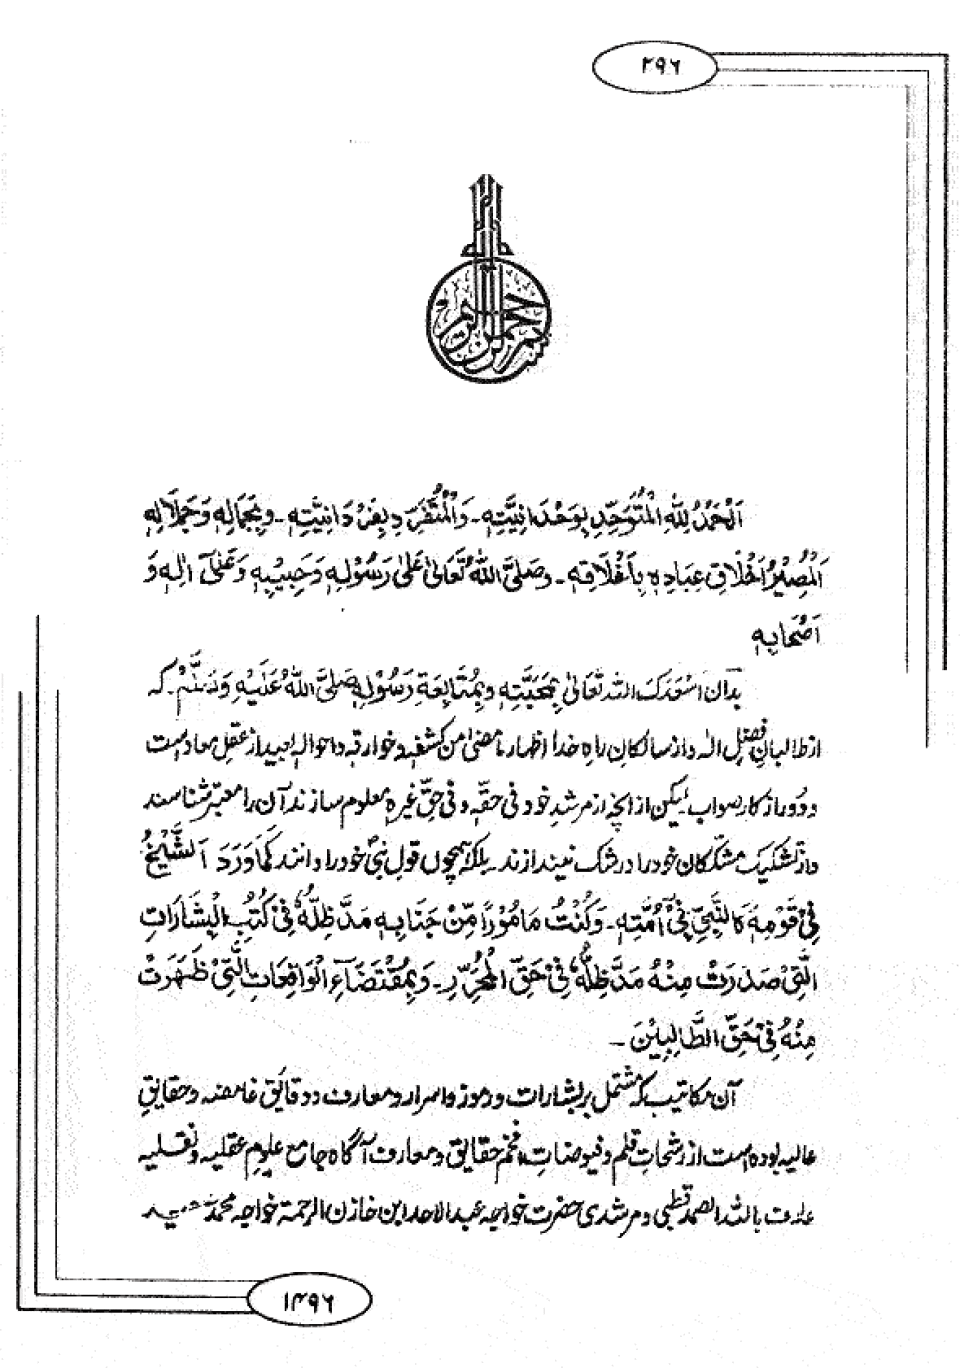 ۲۹۶
بسم الله الرحمن الرحیم
اَلْحَمْدُ لِلّٰهِ الْمُتَوَحِّدِ بِوَحْدَانِیَّتِهٖ ـ وَالْمُتَفَرِّدِ بِفَرْدَانِیَّتِهٖ ـ وَبِجَمَالِهٖ وَجَلَالِهٖ
اَلْمُصَیِّرُ اَخْلَاقِ عِبَادِهٖ بِاَخْلَاقِهٖ ـ وَصَلَّی اللّٰهُ تَعَالٰی عَلٰی رَسُوْلِهٖ وَحَبِیْبِهٖ وَعَلٰی آلِهٖ وَ
اَصْحَابِهٖ
بدان اَسْعَدَكَ اللّٰه تَعَالٰی بِمَحَبَّتِهٖ وَبِمُتَابِعَةِ رَسُوْلِهٖ صَلَّی اللّٰهُ عَلَیْهِ وَسَلَّمْ ـ که
از طالبانِ فضلِ اله و از سالکانِ راهِ خدا اظهار ما مضیٰ من کشفه و خوارقه و احواله بعید از عقلِ معاد است
و دور از کار صواب لیکن از آنچه از مرشدِ خود فی حقّه و فی حقّ غیره معلوم سازند آن را معتبر شناسند
و از تشکیک مشکّکان خود را در شک نیندازند بلکه همچوں قول نبیؐ خود را دانند کَمَا وَرَدَ اَلشَّیْخُ
فِیْ قَوْمِهٖ کَالنَّبِیِّ فِیْ اُمَّتِهٖ ـ وَکُنْتُ مَامُوْرًا مِّنْ جَنَابِهٖ مَدَّ ظِلُّهٗ فِیْ کُتُبِ الْبِشَارَاتِ
الَّتِیْ صَدَرَتْ مِنْهُ مَدَّ ظِلُّهٗ فِیْ حَقِّ الْمُحَرِّرِ ـ وَبِمُقْتَضَآءِ الْوَاقِعَاتِ الَّتِیْ ظَهَرَتْ
مِنْهُ فِیْ حَقِّ الطَّالِبِیْنَ ـ
آن مکاتیب که مشتمل بر بشارات و رموز و اسرار و معارف و دقایق غامضه و حقایقِ
عالیه بوده است از رشحاتِ قلم و فیوضاتِ فخم حقایق و معارف آگاه جامع علومِ عقلیه و نقلیه
عارف باللّٰه الصمد قطبی و مرشدی حضرت خواجه عبدالاحد ابن خازن الرحمة خواجه محمد سعید
۱۴۹۶